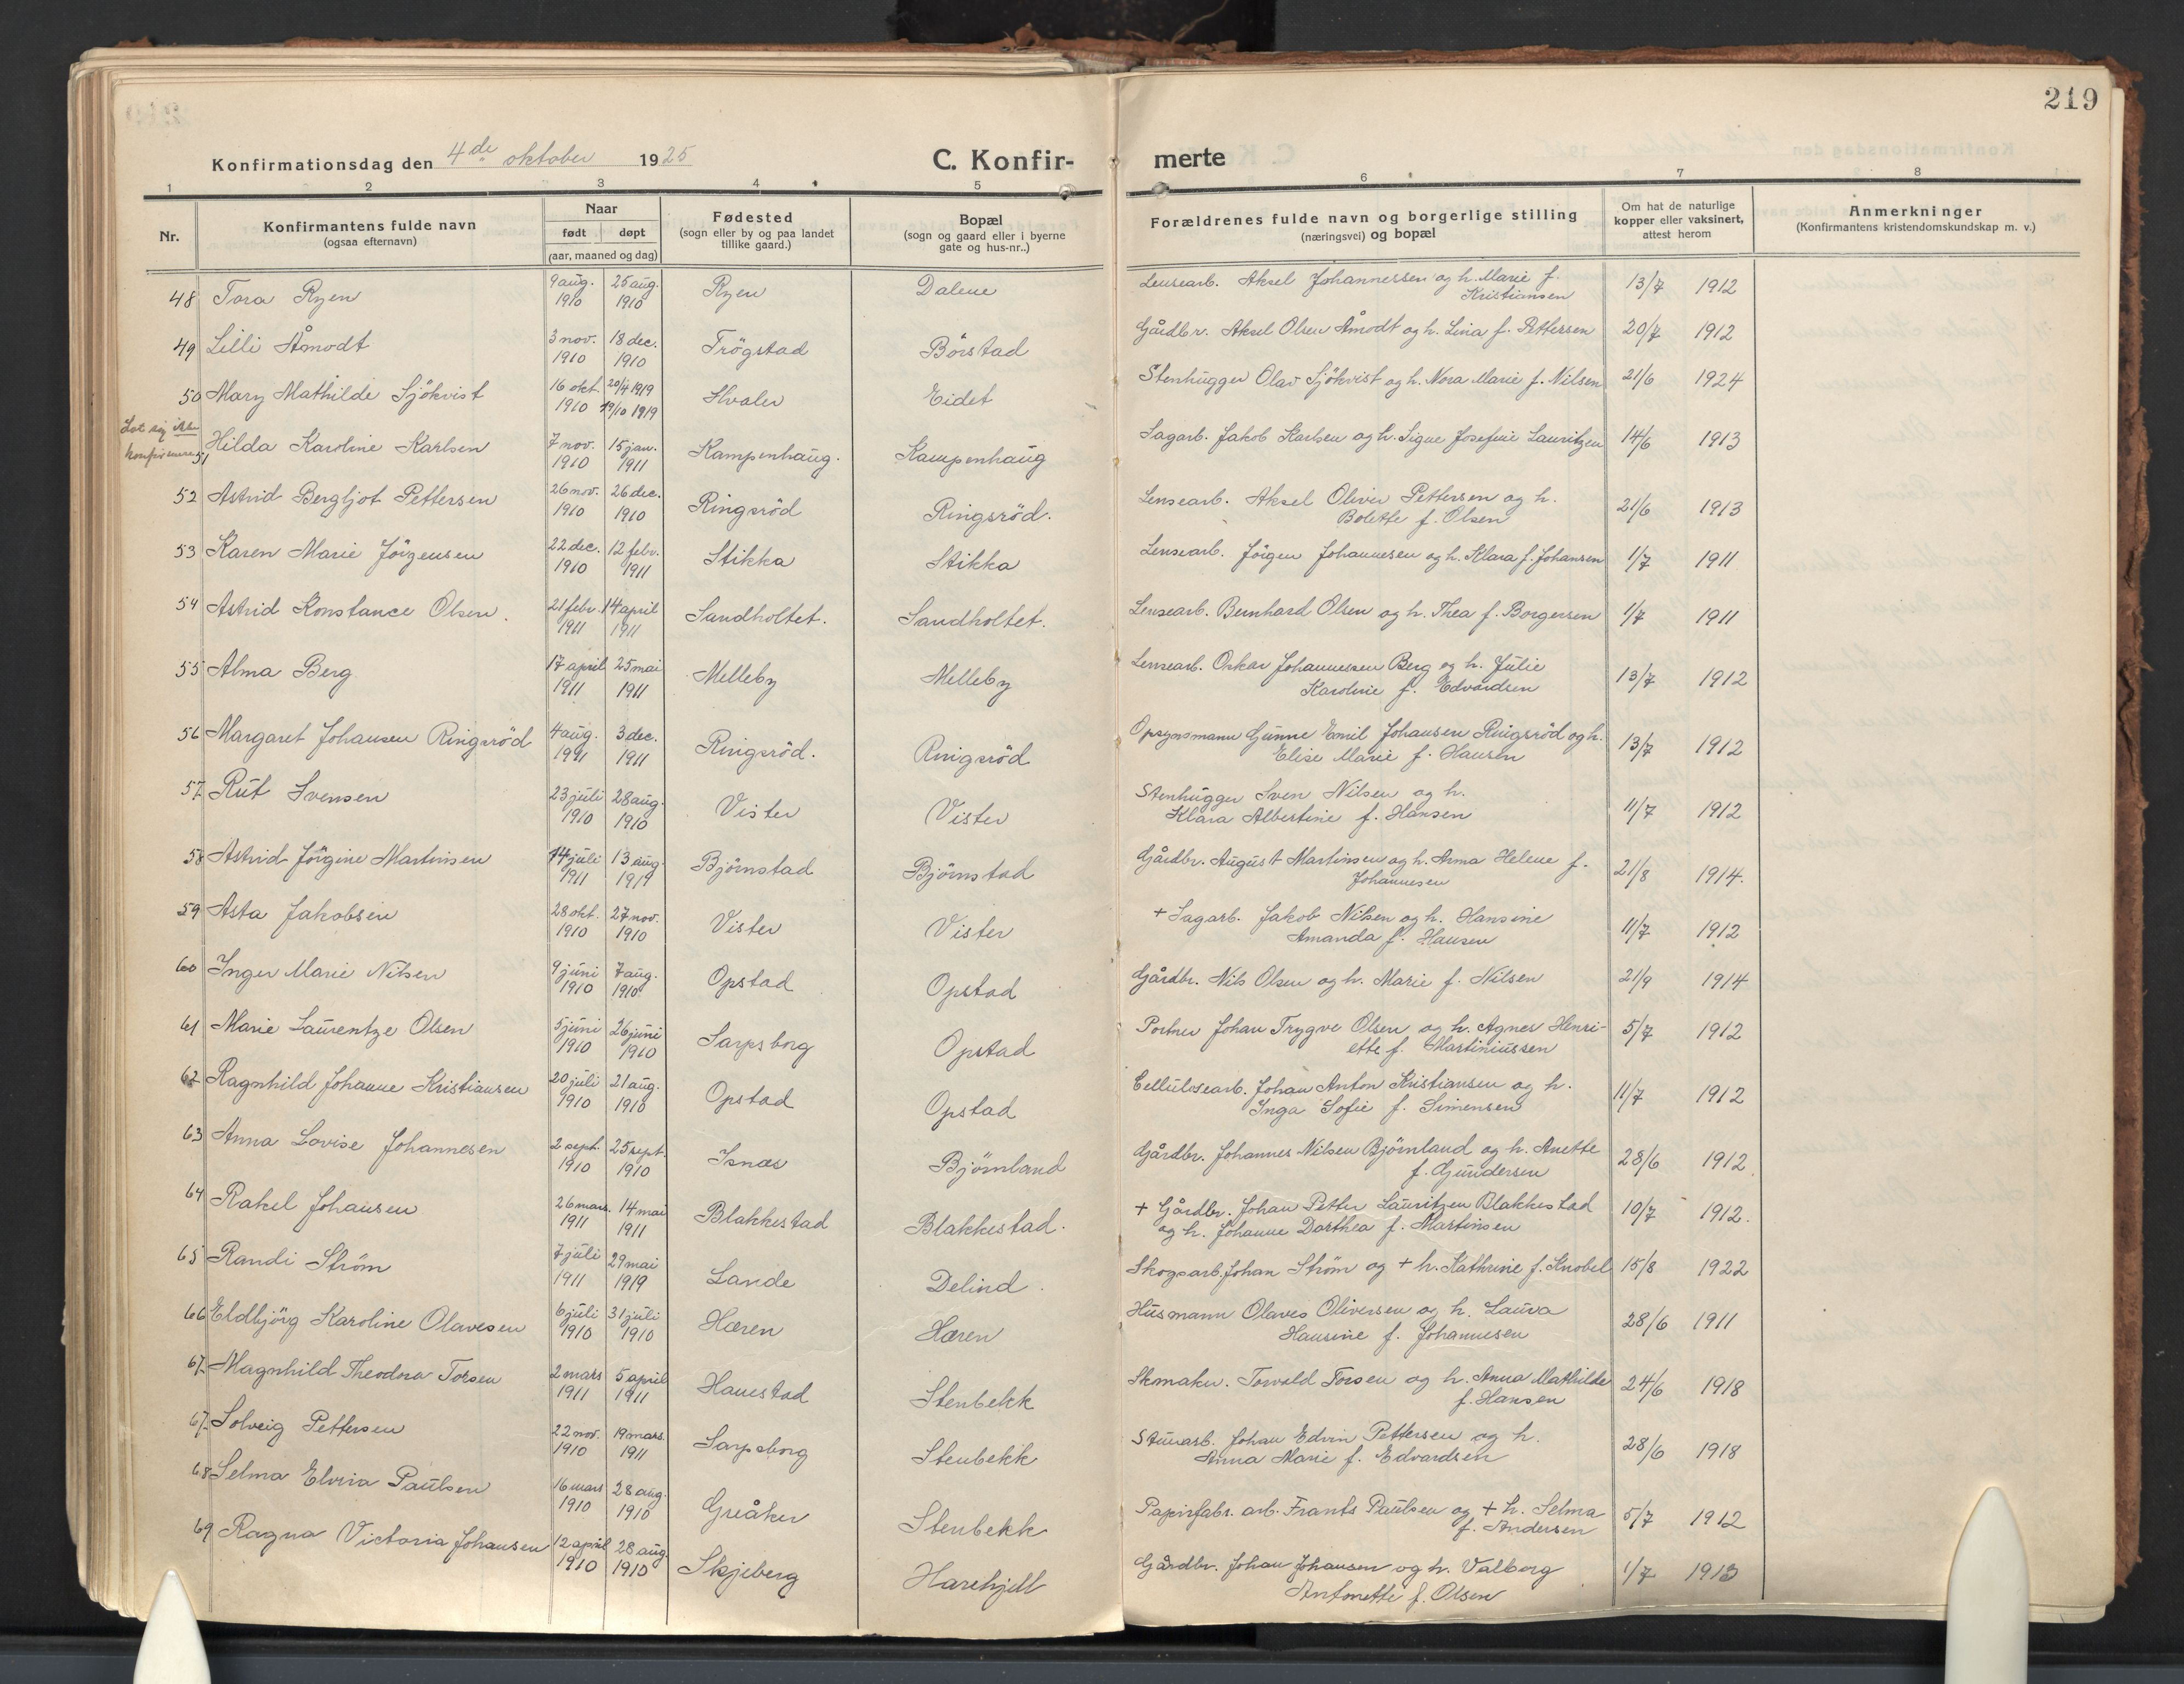 219
Konfirmationsdag den 4de oktober 1925 C. Konfir- merte
1 2 3 4 5 6 7 8
Nr. Konfirmantens fulde navn (ogsaa efternavn) Naar født døpt (aar, maaned og dag) Fødested (sogn eller by og paa landet tillike gaard.) Bopæl (sogn og gaard eller i byerne gate og hus-nr..) Forældrenes fulde navn og borgerlige stilling (næringsvei) og bopæl Om hat de naturlige kopper eller vaksinert, attest herom Anmerkninger (Konfirmantens kristendomskundskap m. v.)
48 Tora Ryen 9 aug. 1910 25 aug. 1910 Ryen Dalene Lensearb. Aksel Johannessen og h. Marie f. Kristiansen 13/7 1912
49 Lilli Åmodt 3 nov. 1910 18 dec. 1910 Trögstad Börstad Gårdbr. Aksel Olsen Åmodt og h. Lina f. Pettersen 20/7 1912
50 Mary Mathilde Sjökvist 16 okt. 1910 20/4 1919 19/10 1919 Hvaler Eidet Stenhugger Olav Sjökvist og h. Nora Marie f. Nilsen 21/6 1924
Lot sig ikke konfirmere
51 Hilda Karoline Karlsen 7 nov. 1910 15 jan. 1911 Kampenhaug. Kampenhaug Sagarb. Jakob Karlsen og h. Signe Josefine Lauritzen 14/6 1913
52 Astrid Bergljot Pettersen 26 nov. 1910 26 dec. 1910 Ringsröd Ringsröd. Lensearb. Aksel Oliver Pettersen og h. Bolette f. Olsen 21/6 1913
53 Karen Marie Jörgensen 22 dec. 1910 12 febr. 1911 Stikka Stikka Lensearb. Jörgen Johannesen og h. Klara f. Johansen 1/7 1911
54 Astrid Konstance Olsen. 21 febr. 1911 14 april 1911 Sandholtet. Sandholtet. Lensearb. Bernhard Olsen og h. Thea f. Borgersen 1/7 1911
55 Alma Berg 17 april 1911 25 mai 1911 Melleby Melleby Lensearb. Oskar Johannessen Berg og h. Julie Karoline f. Edvardsen 13/7 1912
56 Margaret Johansen Ringsröd 4 aug. 1911 3 dec. 1911 Ringsröd. Ringsröd Opsynsmann Gunne Emil Johansen Ringsröd og h. Elise Marie f. Hansen 13/7 1912
57 Rut Svensen 23 juli 1910 28 aug. 1910 Vister Vister Stenhugger Sven Nilsen og h. Klara Albertine f. Hansen 11/7 1912
58 Astrid Jörgine Martinsen 14 juli 1911 13 aug. 1911 Björnstad Björnstad Gårdbr. August Martinsen og h. Anna Helene f. Johannesen 21/8 1914.
59 Asta Jakobsen 28 okt. 1910 27 nov. 1910 Vister Vister + Sagarb. Jakob Nilsen og h. Hansine Amanda f. Hansen 11/7 1912
60 Inger Marie Nilsen 9 juni 1910 7 aug. 1910 Opstad Opstad Gårdbr. Nils Olsen og h. Marie f. Nilsen 21/9 1914
61 Marie Laurentze Olsen 5 juni 1910 26 juni 1910 Sarpsborg Opstad Portner Johan Trygve Olsen og h. Agnes Henri- ette f. Martiniussen 5/7 1912
62 Ragnhild Johanne Kristiansen 20 juli 1910 21 aug. 1910 Opstad Opstad Cellulosearb. Johan Anton Kristiansen og h. Inga Sofie f. Simensen 11/7 1912
63 Anna Lovise Johannesen 2 sept. 1910 25 sept. 1910 Isnæs Björnland Gårdbr. Johannes Nilsen Björnland og h. Anette f. Gundersen 28/6 1912.
64 Rakel Johansen 26 mars. 1911 14 mai 1911 Blakkestad Blakkestad. + Gårdbr. Johan Petter Lauritzen Blakkestad og h. Johanne Dorthea f. Martinsen 10/7 1912.
65 Randi Strøm 7 juli 1911 29 mai 1919 Lande Delind. Skogsarb. Johan Strøm og + h. Kathrine f. Knobel 15/8 1922
66 Eldbjörg Karoline Olavesen 6 juli 1910 31 juli 1910 Hæren Hæren Husmann Olaves Oliversen og h. Laura Hansine f. Johannesen 28/6 1911
67. Magnhild Theodora Torsen 2 mars 1911 5 april 1911 Hauestad Stenbekk Skomaker. Torvald Torsen og h. Anna Mathilde f. Hansen 24/6 1918
67. Solveig Pettersen 22 nov. 1910 19 mars. 1911 Sarpsborg Stenbekk Stuearb. Johan Edvin Pettersen og h. Anna Marie f. Edvardsen 28/6 1918
68 Selma Elvira Paulsen 16 mars 1910 28 aug. 1910 Greåker Stenbekk Papirfabr. arb. Frants Paulsen og + h. Selma f. Andersen 5/7 1912
69 Ragna Victoria Johansen 12 april 1910 28 aug. 1910 Skjeberg Harehjell Gårdbr. Johan Johansen og h. Valborg Antonette f. Olsen 1/7 1913